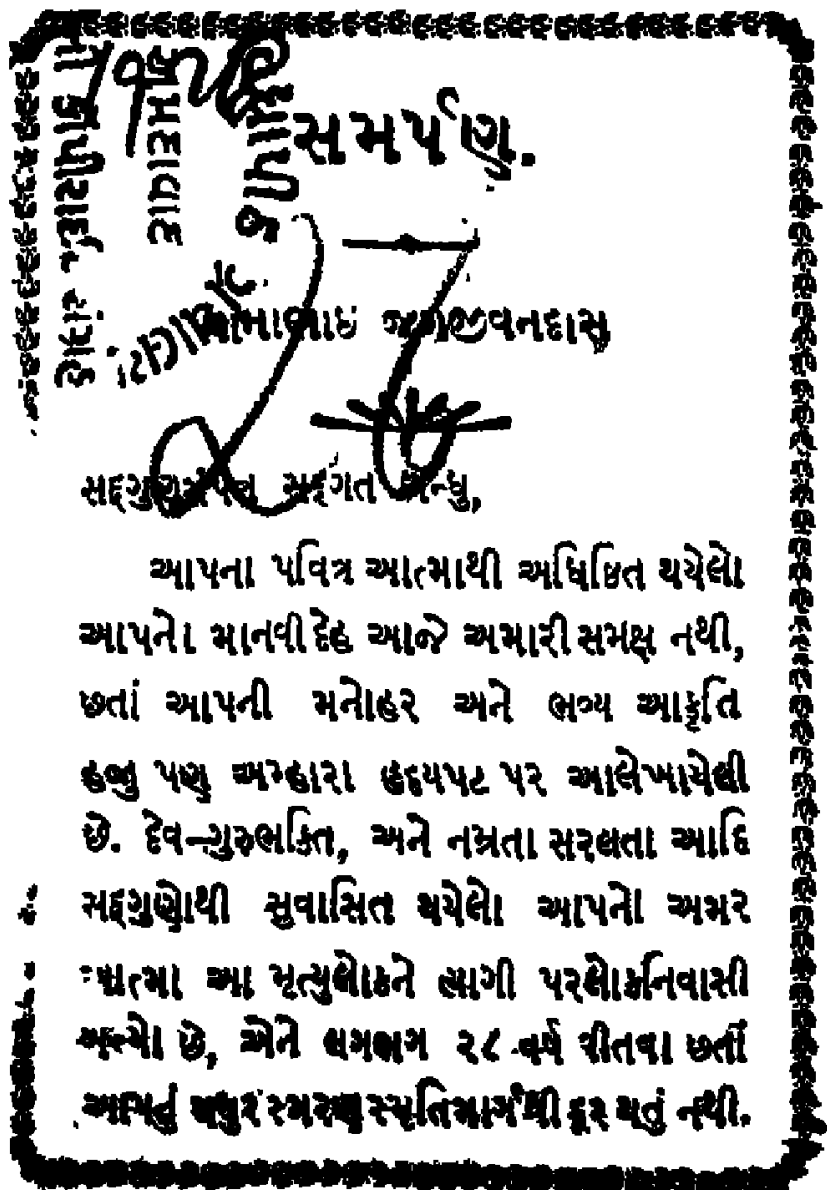 સમર્પણ.
જગજીવનદાસ
સદ્દગુણસંપન્ન સદ્દગત બન્ધુ,
આપના પવિત્ર આત્માથી અધિષ્ઠિત થયેલો
આપનો માનવી દેહ આજે અમારી સમક્ષ નથી,
છતાં આપની મનોહર અને ભવ્ય આકૃતિ
હજુ પણ અમ્હારા હૃદયપટ પર આલેખાયેલી
છે. દેવ-ગુરુભક્તિ, અને નમ્રતા સરલતા આદિ
સદ્દગુણોથી સુવાસિત થયેલો આપનો અમર
આત્મા આ મૃત્યુલોકને ત્યાગી પરલોકનિવાસી
બન્યો છે, એને લગભગ ૨૮ વર્ષ વીતવા છતાં
આપનું મધુર સ્મરણ સ્મૃતિમાર્ગથી દૂર થતું નથી.